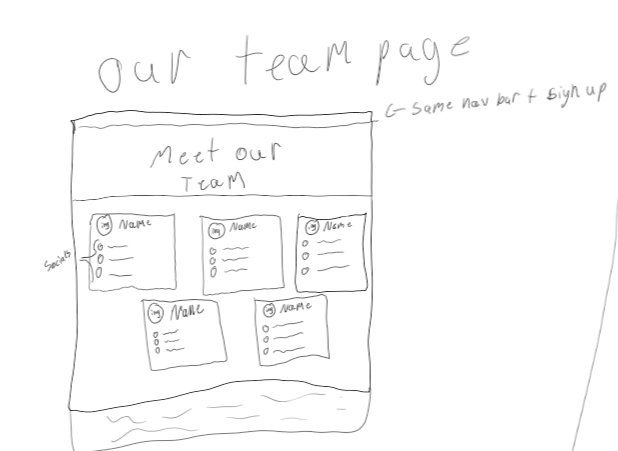 our team page
← Same nav bar + sign up
Meet our
Team
img Name
img Name
img Name
Socials
img Name
img Name